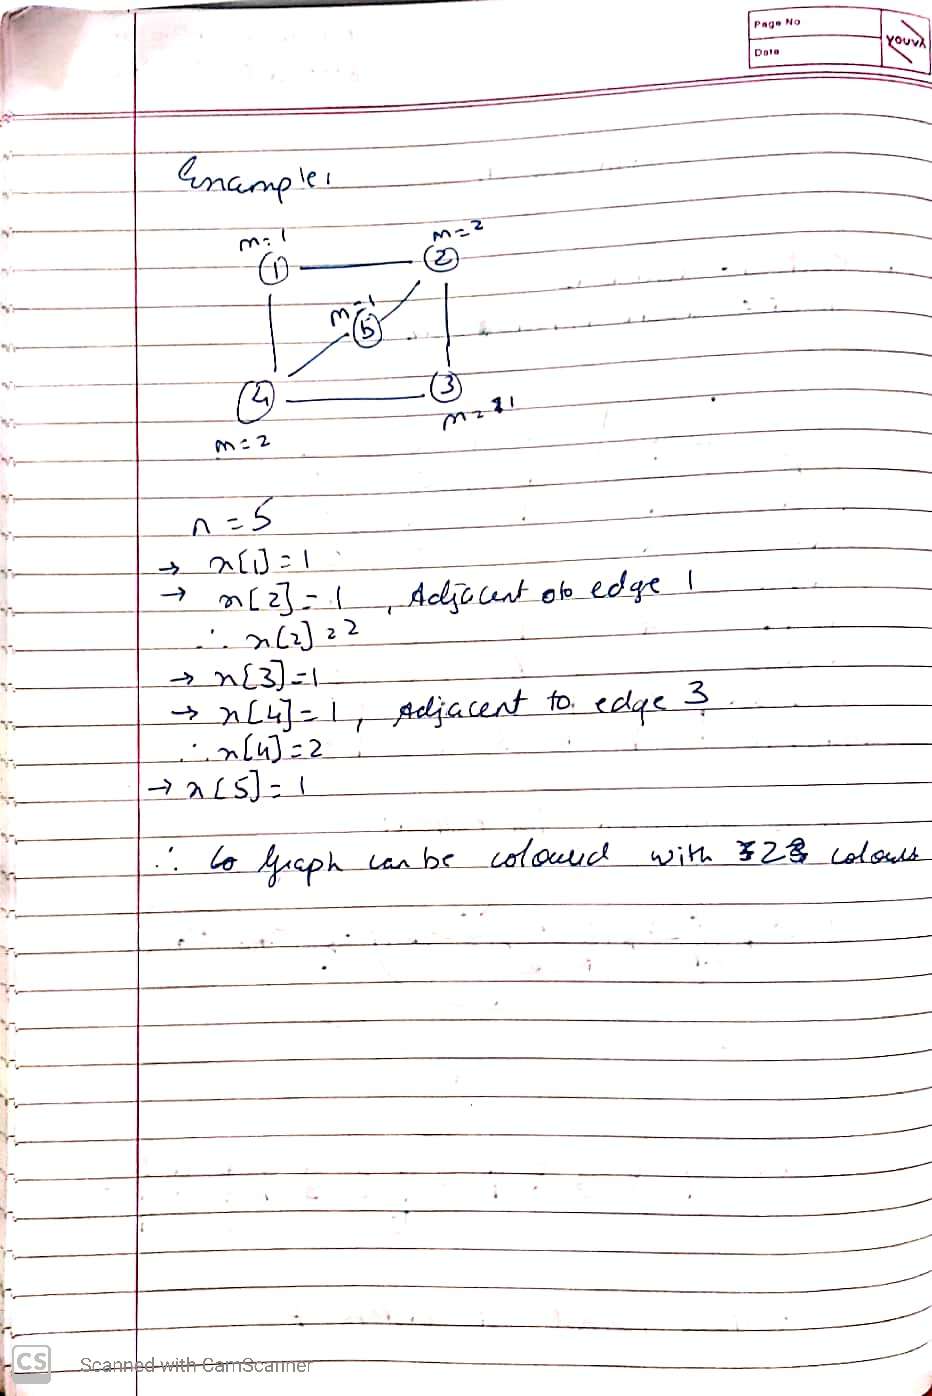 Page No
Date
YOUVA
Example:
m=1
m=2
1
2
m=1
5
4
3
m=1
m=2
n=5
→ x[1]=1
→ x[2]=1, Adjacent to edge 1
∴ x[2]=2
→ x[3]=1
→ x[4]=1, Adjacent to edge 3
∴ x[4]=2
→ x[5]=1
∴ Graph can be coloured with 2 colours
CS Scanned with CamScanner